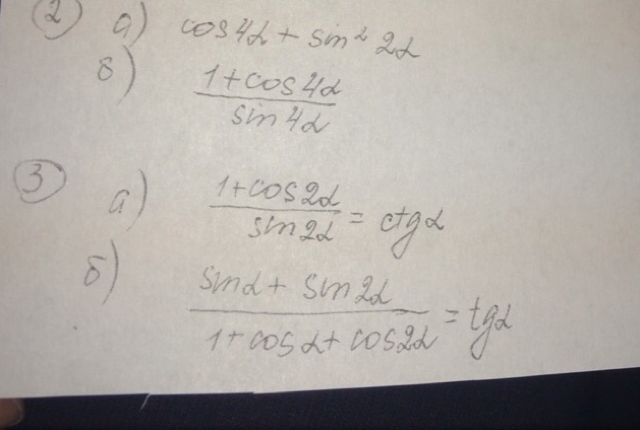 2) а) cos4α + sin² 2α
б) (1+cos4α)/(sin4α)
3) а) (1+cos2α)/(sin2α) = ctgα
б) (sinα + sin2α)/(1+cosα+cos2α) = tgα